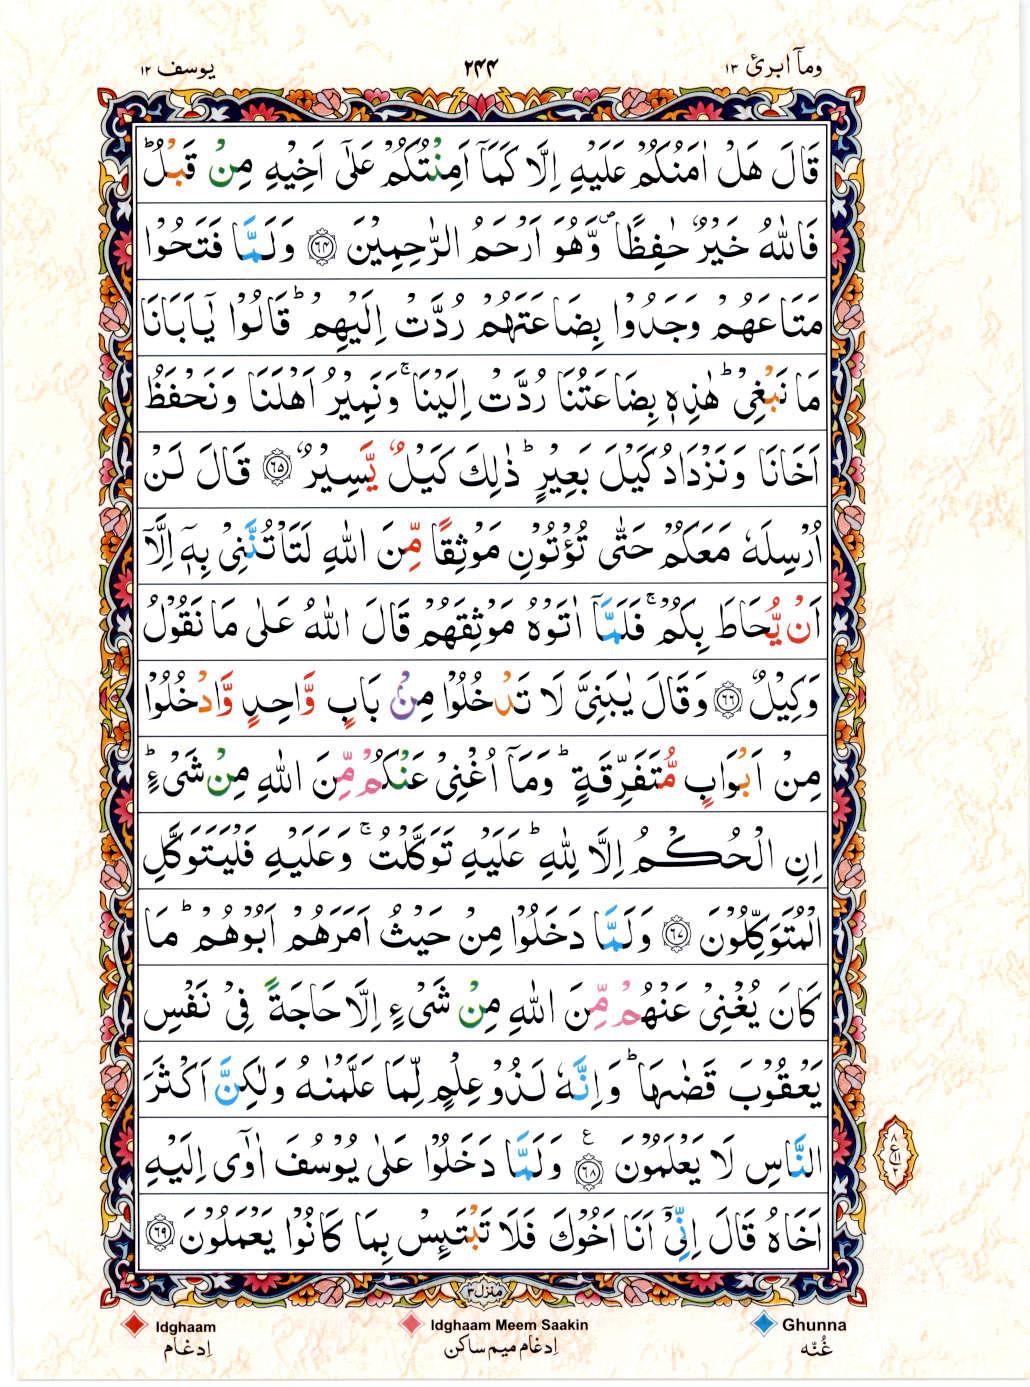 ومآ ابرئ ١٣
٢٤٤
يوسف ١٢
قَالَ هَلْ اٰمَنُكُمْ عَلَيْهِ اِلَّا كَمَآ اَمِنْتُكُمْ عَلٰٓى اَخِيْهِ مِنْ قَبْلُ ؕ
فَاللّٰهُ خَيْرٌ حٰفِظًا ۪ وَّهُوَ اَرْحَمُ الرّٰحِمِيْنَ ﴿٦٤﴾ وَلَمَّا فَتَحُوْا
مَتَاعَهُمْ وَجَدُوْا بِضَاعَتَهُمْ رُدَّتْ اِلَيْهِمْ ؕ قَالُوْا يٰۤاَبَانَا
مَا نَبْغِىْ ؕ هٰذِهٖ بِضَاعَتُنَا رُدَّتْ اِلَيْنَا ۚ وَنَمِيْرُ اَهْلَنَا وَنَحْفَظُ
اَخَانَا وَنَزْدَادُ كَيْلَ بَعِيْرٍ ؕ ذٰلِكَ كَيْلٌ يَّسِيْرٌ ﴿٦٥﴾ قَالَ لَنْ
اُرْسِلَهٗ مَعَكُمْ حَتّٰى تُؤْتُوْنِ مَوْثِقًا مِّنَ اللّٰهِ لَتَاْتُنَّنِىْ بِهٖۤ اِلَّاۤ
اَنْ يُّحَاطَ بِكُمْ ۚ فَلَمَّاۤ اٰتَوْهُ مَوْثِقَهُمْ قَالَ اللّٰهُ عَلٰى مَا نَقُوْلُ
وَكِيْلٌ ﴿٦٦﴾ وَقَالَ يٰبَنِىَّ لَا تَدْخُلُوْا مِنْۢ بَابٍ وَّاحِدٍ وَّادْخُلُوْا
مِنْ اَبْوَابٍ مُّتَفَرِّقَةٍ ؕ وَمَاۤ اُغْنِىْ عَنْكُمْ مِّنَ اللّٰهِ مِنْ شَىْءٍ ؕ
اِنِ الْحُكْمُ اِلَّا لِلّٰهِ ؕ عَلَيْهِ تَوَكَّلْتُ ۚ وَعَلَيْهِ فَلْيَتَوَكَّلِ
الْمُتَوَكِّلُوْنَ ﴿٦٧﴾ وَلَمَّا دَخَلُوْا مِنْ حَيْثُ اَمَرَهُمْ اَبُوْهُمْ ؕ مَا
كَانَ يُغْنِىْ عَنْهُمْ مِّنَ اللّٰهِ مِنْ شَىْءٍ اِلَّا حَاجَةً فِىْ نَفْسِ
يَعْقُوْبَ قَضٰىهَا ؕ وَاِنَّهٗ لَذُوْ عِلْمٍ لِّمَا عَلَّمْنٰهُ وَلٰكِنَّ اَكْثَرَ
النَّاسِ لَا يَعْلَمُوْنَ ﴿٦٨﴾ ع وَلَمَّا دَخَلُوْا عَلٰى يُوْسُفَ اٰوٰۤى اِلَيْهِ
اَخَاهُ قَالَ اِنِّىْۤ اَنَا اَخُوْكَ فَلَا تَبْتَئِسْ بِمَا كَانُوْا يَعْمَلُوْنَ ﴿٦٩﴾
منزل ٣
Idghaam
اِدغام
Idghaam Meem Saakin
اِدغام میم ساکن
Ghunna
غُنّه